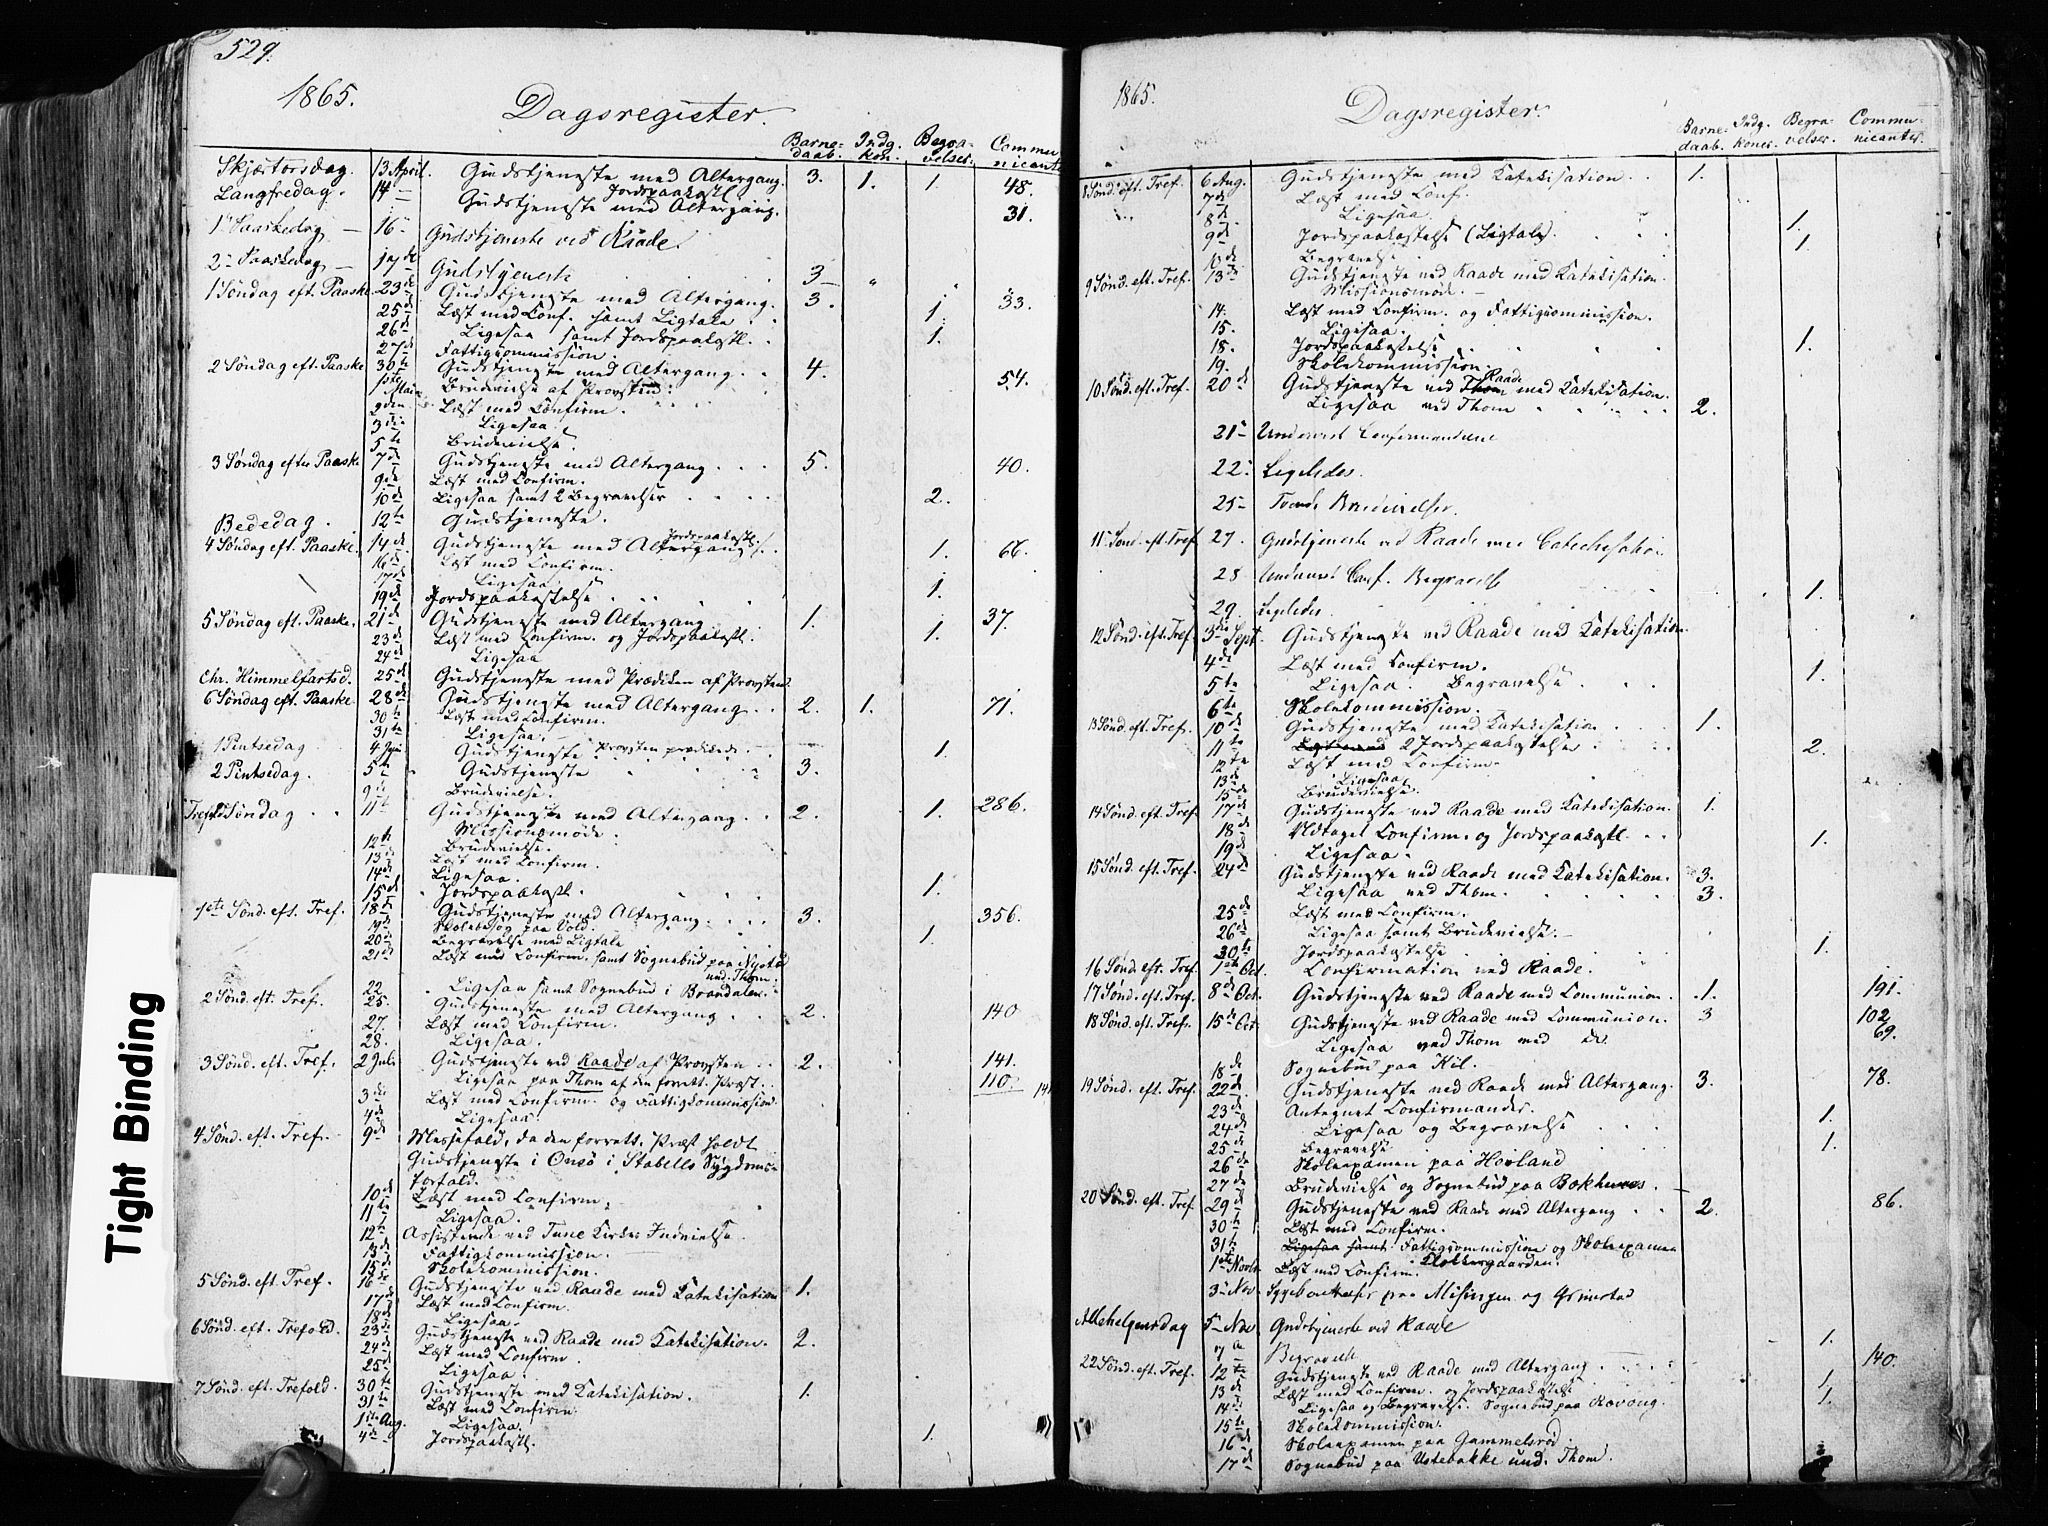 529.
1865.
Dagsregister.
Barne-daab. Indg. kon. Begra-velser. Commu-nicanter
Skjærtorsdag. 13 April. Gudstjeneste med Altergang. 3. 1. 1. 48.
Langfredag. 14 — Gudstjeneste med Altergang. Jordspaakastl. 31.
1ste Paaskedag — 16 Gudstjeneste ved Raade.
2den Paaskedag — 17de Gudstjeneste 3
1 Søndag eft. Paaske. 23de Gudstjeneste med Altergang. 3. 33.
25de Læst med Conf. samt Ligtale 1.
26de Ligesaa samt Jordspaakastl. 1.
27de Fattigcommission.
2 Søndag eft. Paaske 30te Gudstjeneste med Altergang. 4. 54.
1ste Mai Brudevielse af Provsten.
2den Læst med Confirm.
3die Ligesaa.
5te Brudevielse.
3 Søndag efter Paaske 7de Gudstjeneste med Altergang. 5. 40.
9de Læst med Confirm.
10de Ligesaa samt 2 Begravelser 2.
Bededag. 12te Gudstjeneste.
4 Søndag eft. Paaske. 14de Gudstjeneste med Altergang Jordspaakastl. 1. 66.
16de Læst med Confirm.
17de Ligesaa.
19de Jordspaakastelse 1.
5 Søndag eft. Paaske. 21de Gudstjeneste med Altergang 1. 37.
23de Læst med Confirm. og Jordspaakastl. 1.
24de Ligesaa
Chr. Himmelfartsd. 25de Gudstjeneste med Prædiken af Provsten
6 Søndag eft. Paaske 28de Gudstjeneste med Altergang 2. 1. 71.
30te Læst med Confirm.
31te Ligesaa.
1 Pintsedag 4 Juni Gudstjeneste Provsten prædikede 1.
2 Pintsedag. 5te Gudstjeneste 3.
9de Brudevielse.
Trefold Søndag 11te Gudstjeneste med Altergang 2. 1. 286.
Missionsmøde.
12te Brudevielse.
13de Læst med Confirm.
14de Ligesaa.
15de Jordspaakastl. 1.
1ste Sønd. eft. Tref. 18de Gudstjeneste med Altergang. 3. 356.
19de Skolebesøg paa Vold.
20de Begravelse med Ligtale 1.
21de Læst med Confirm. samt Sognebud paa und. Thom
22 Ligesaa samt Sognebud i Brandalen.
2 Sønd. eft. Tref. 25. Gudstjeneste med Altergang 2. 140
27. Læst med Confirm.
28. Ligesaa.
3 Sønd. eft. Tref. 2 Juli Gudstjeneste ved Raade af Provsten 2. 141.
Ligesaa paa Thom af den forrett. Præst. 110
3die Læst med Confirm. og Fattigkommission.
4de Ligesaa.
4 Sønd. eft. Tref. 9de Messefald, da den forrett. Præst holdt
Gudstjeneste i Onsø i Stabells Sygdoms-
forfald.
10de Læst med Confirm.
11te Ligesaa.
12te Assisterede ved Tune Kirkes Indvielse.
13de Fattigkommission.
15de Skolekommission.
5 Sønd. eft. Tref. 16de Gudstjeneste ved Raade med Katekisation 1.
17de Læst med Confirm.
18de Ligesaa.
6 Sønd. eft. Trefold. 23de Gudstjeneste ved Raade med Katekisation. 2.
24de Læst med Confirm.
25de Ligesaa.
7 Sønd. eft. Trefold. 30te Gudstjeneste med Katekisation. 1.
31te Læst med Confirm.
1ste Aug. Ligesaa.
4de Jordspaakastl. 1.
Tight Binding
1865.
Dagsregister.
Barne-daab. Indg. koner. Begra-velser. Commu-nicanter.
8 Sønd. eft. Tref. 6 Aug. Gudstjeneste med Katekisation 1.
7de Læst med Conf.
8de Ligesaa.
9de Jordspaakastelse (Ligtale). 1.
Begravelse 1.
9 Sønd. eft. Tref. 13de Gudstjeneste ved Raade med Katekisation.
Missionsmøde.
14. Læst med Confirm. og Fattigcommission.
15. Ligesaa.
18. Jordspaakastelse 1.
19. Skolekommission.
10 Sønd. eft. Tref. 20de Gudstjeneste ved Raade med Katekisation.
Ligesaa ved Thom 2.
21 Underviist Confirmanderne
22 Ligeledes.
25 Tvende Brudevielser.
11 Sønd. eft. Tref 27. Gudstjeneste ved Raade med Catechisation
28 Underviist Conf. Begravelse 1.
29. Ligeledes
12 Sønd. eft. Tref. 3die Sept. Gudstjeneste ved Raade med Katekisation.
4de Læst med Confirm.
5te Ligesaa. Begravelse 1.
6te Skolekommission.
13 Sønd. eft. Tref. 10de Gudstjeneste med Katekisation 1.
11te 2 Jordspaakastelser 2.
12te Læst med Confirm.
13de Ligesaa.
15de Brudevielse.
14 Sønd. eft. Tref. 17de Gudstjeneste ved Raade med Katekisation. 1.
18de Udtaget Confirm. og Jordspaakastl. 1.
19de Ligesaa.
15 Sønd. eft. Tref. 24de Gudstjeneste ved Raade med Katekisation. 3.
Ligesaa ved Thom. 3.
25de Læst med Confirm.
26de Ligesaa samt Brudevielse.
30te Jordspaakastelse 1.
16 Sønd. eft. Tref. 1ste Oct. Confirmation ved Raade.
17 Sønd. eft. Tref. 8de Oct. Gudstjeneste ved Raade med Communion. 1. 191.
18 Sønd. eft. Tref. 15de Oct. Gudstjeneste ved Raade med Communion. 3 102
Ligesaa ved Thom med do. 69.
18de Sognebud paa Kil.
19 Sønd. eft. Tref. 22de Gudstjeneste ved Raade med Altergang. 3. 78.
23de Antegnet Confirmander.
24de Ligesaa og Begravelse 1.
25de Begravelse 1.
26de Skoleexamen paa Hovland
27de Brudevielse og Sognebud paa
20 Sønd. eft. Tref 29de Gudstjeneste ved Raade med Altergang 2. 86.
30te Læst med Confirm.
31te Ligesaa samt Fattigcommission og Skoleexamen
Klokkergaarden.
1ste Novbr. Læst med Confirm.
3 Nov. Sygebesøgelser paa Misingen og Grimstad
Allehelgensdag 5 Nov Gudstjeneste ved Raade
Begravelse 1.
22 Sønd. eft. Tref. 12te Gudstjeneste ved Raade med Altergang 140.
13de Læst med Confirm. og Jordspaakastelse 1.
14de Ligesaa og Begravelse. Sognebud paa 1.
15te Skolekommission.
16de Skoleexamen paa Gammelsrød
17de Sognebud paa Ustebakke und. Thom.